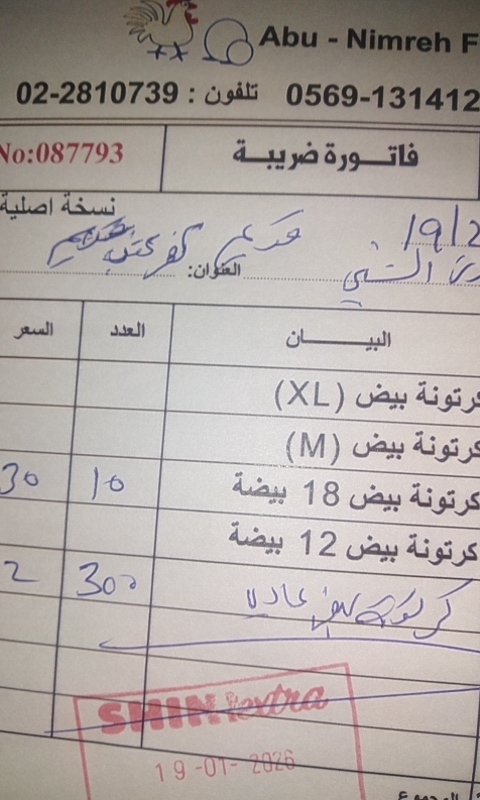 Abu - Nimreh F
0569-131412 تلفون : 02-2810739
فاتورة ضريبة
No:087793
نسخة اصلية
19/2
العنوان:
البيـــــان العدد السعر
كرتونة بيض (XL)
كرتونة بيض (M)
كرتونة بيض 18 بيضة 10 30
كرتونة بيض 12 بيضة
كرتونة بيض عادي 300 2
SHIN extra
19-01-2026
المجموع